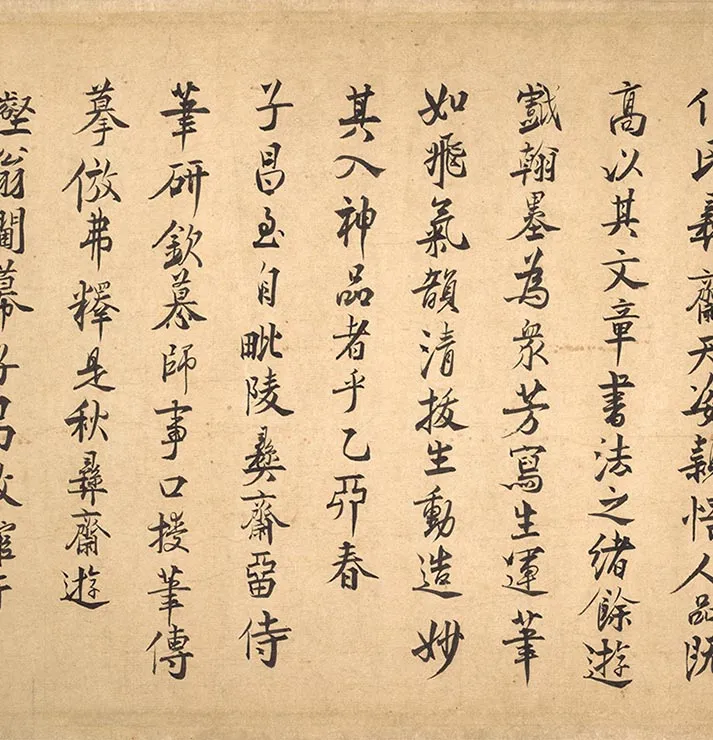 民彝齋天姿穎悟人品既
高以其文章書法之緒餘遊
戲翰墨為衆芳寫生運筆
如飛氣韻清拔生動造妙
其入神品者乎乙卯春
子昌至自毗陵彝齋留侍
筆研欽慕師事口授筆傳
摹倣弗釋是秋彝齋遊
壑翁閫幕子昌效官于